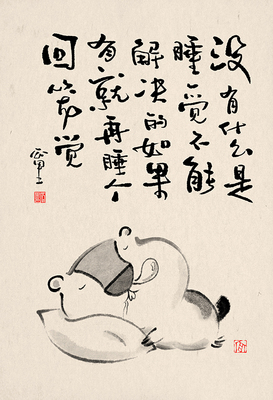 没有什么是
睡一觉不能
解决的如果
有就再睡个
回笼觉